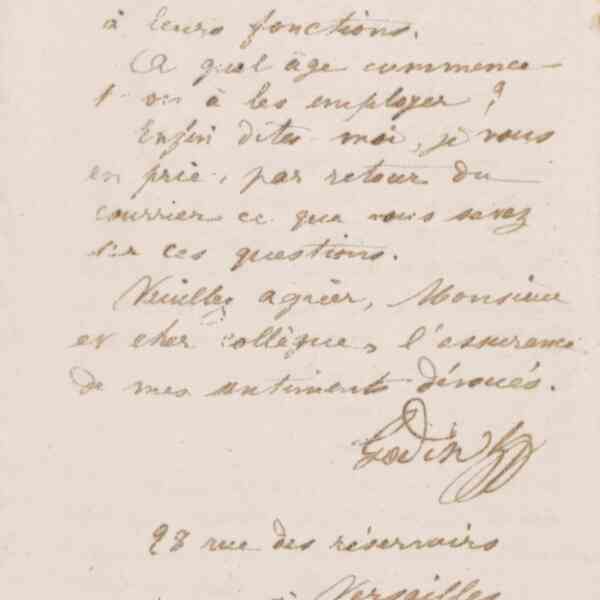 à leurs fonctions.
A quel âge commence-
t-on à les employer ?
Enfin dites-moi, je vous
en prie, par retour du
courrier ce que vous savez
sur ces questions.
Veuillez agréer, Monsieur
et cher collègue, l'assurance
de mes sentiments dévoués.
Godin
28 rue des réservoirs
à Versailles